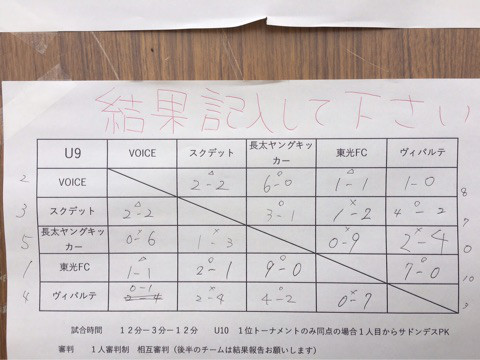 結果記入して下さい
U9 VOICE スクデット 長太ヤングキッカー 東光FC ヴィパルテ
2 VOICE 2-2 6-0 1-1 1-0 8
3 スクデット 2-2 3-1 1-2 4-2 7
5 長太ヤングキッカー 0-6 1-3 0-9 2-4 0
1 東光FC 1-1 2-1 9-0 7-0 10
4 ヴィパルテ 0-1 2-4 4-2 0-7 3
試合時間 12分-3分-12分 U10 1位トーナメントのみ同点の場合1人目からサドンデスPK
審判 1人審判制 相互審判(後半のチームは結果報告お願いします)